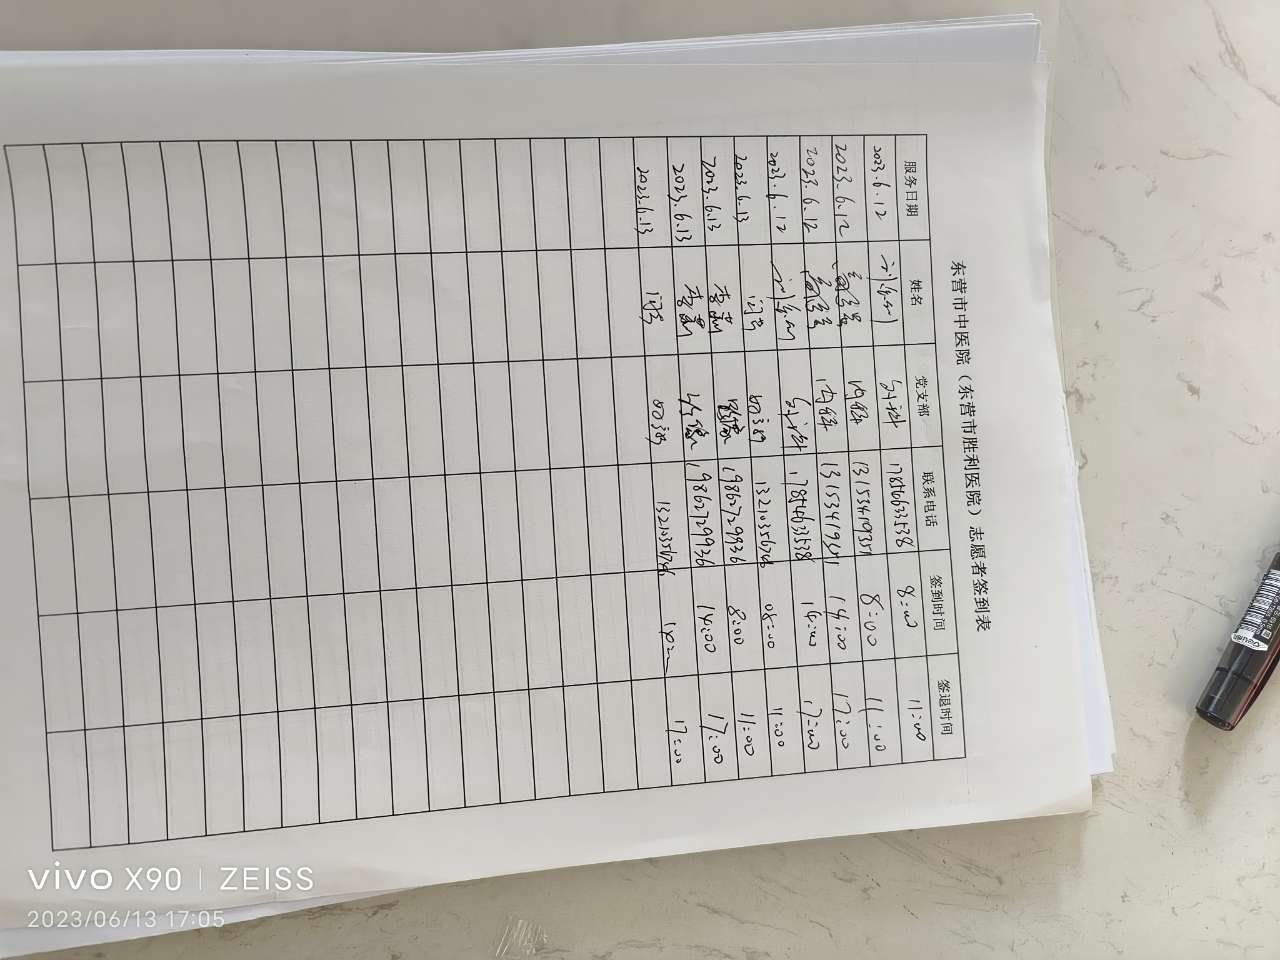 东营市中医院（东营市胜利医院）志愿者签到表
服务日期 姓名 党支部 联系电话 签到时间 签退时间
2023.6.12 外科 17854633538 8:00 11:00
2023.6.12 内科 13153419351 8:00 11:00
2023.6.12 内科 13153419351 14:00 17:00
2023.6.12 外科 17854633538 14:00 17:00
2023.6.13 闫芳 13210356746 08:00 11:00
2023.6.13 李慧 19862729936 8:00 11:00
2023.6.13 李慧 19862729936 14:00 17:00
2023.6.13 闫芳 17:00
vivo X90 | ZEISS
2023/06/13 17:05